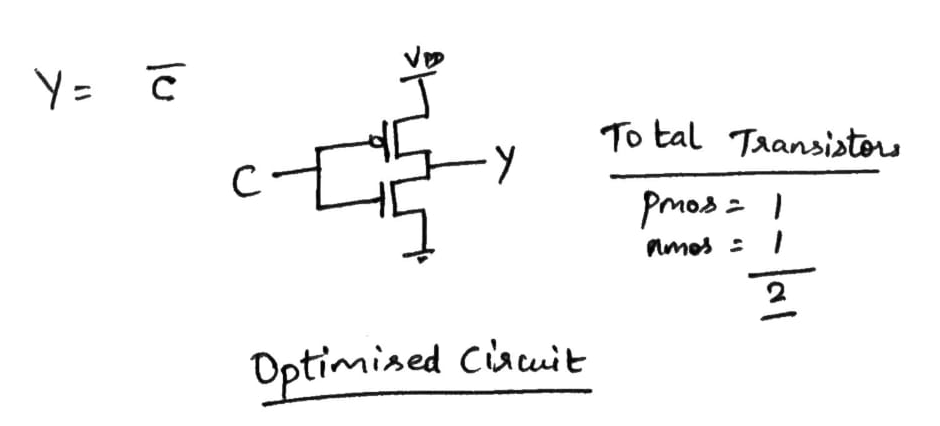 Y = C̅
VDD
C
Y
Total Transistors
pmos = 1
nmos = 1
2
Optimised Circuit